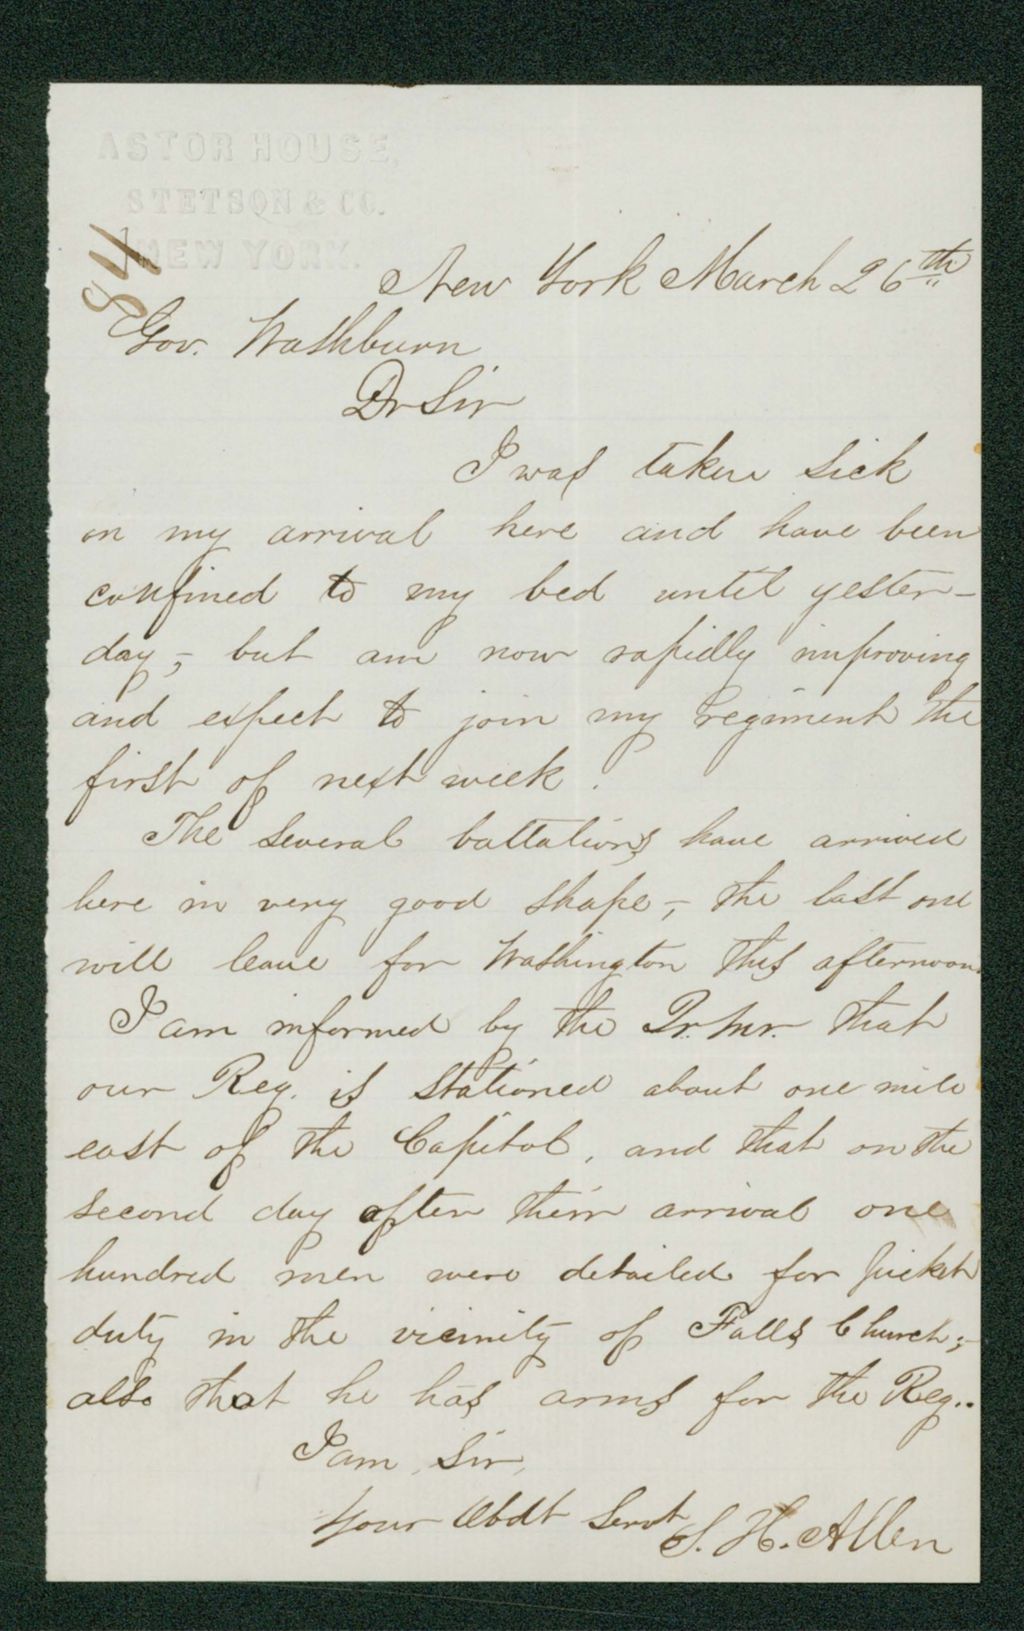 ASTOR HOUSE,
STETSON & CO.
NEW YORK.
New York March 26th
Gov. Washburn
Dr Sir
I was taken sick
on my arrival here and have been
confined to my bed until yester-
day,- but am now rapidly improving
and expect to join my regiment the
first of next week.
The several battalions have arrived
here in very good shape,- the last one
will leave for Washington this afternoon.
I am informed by the Qr. Mr. that
our Reg. is stationed about one mile
east of the Capitol, and that on the
second day after their arrival one
hundred men were detailed for picket
duty in the vicinity of Falls Church;-
also that he has arms for the Reg..
I am, Sir,
Your Obdt Servt
S. H. Allen